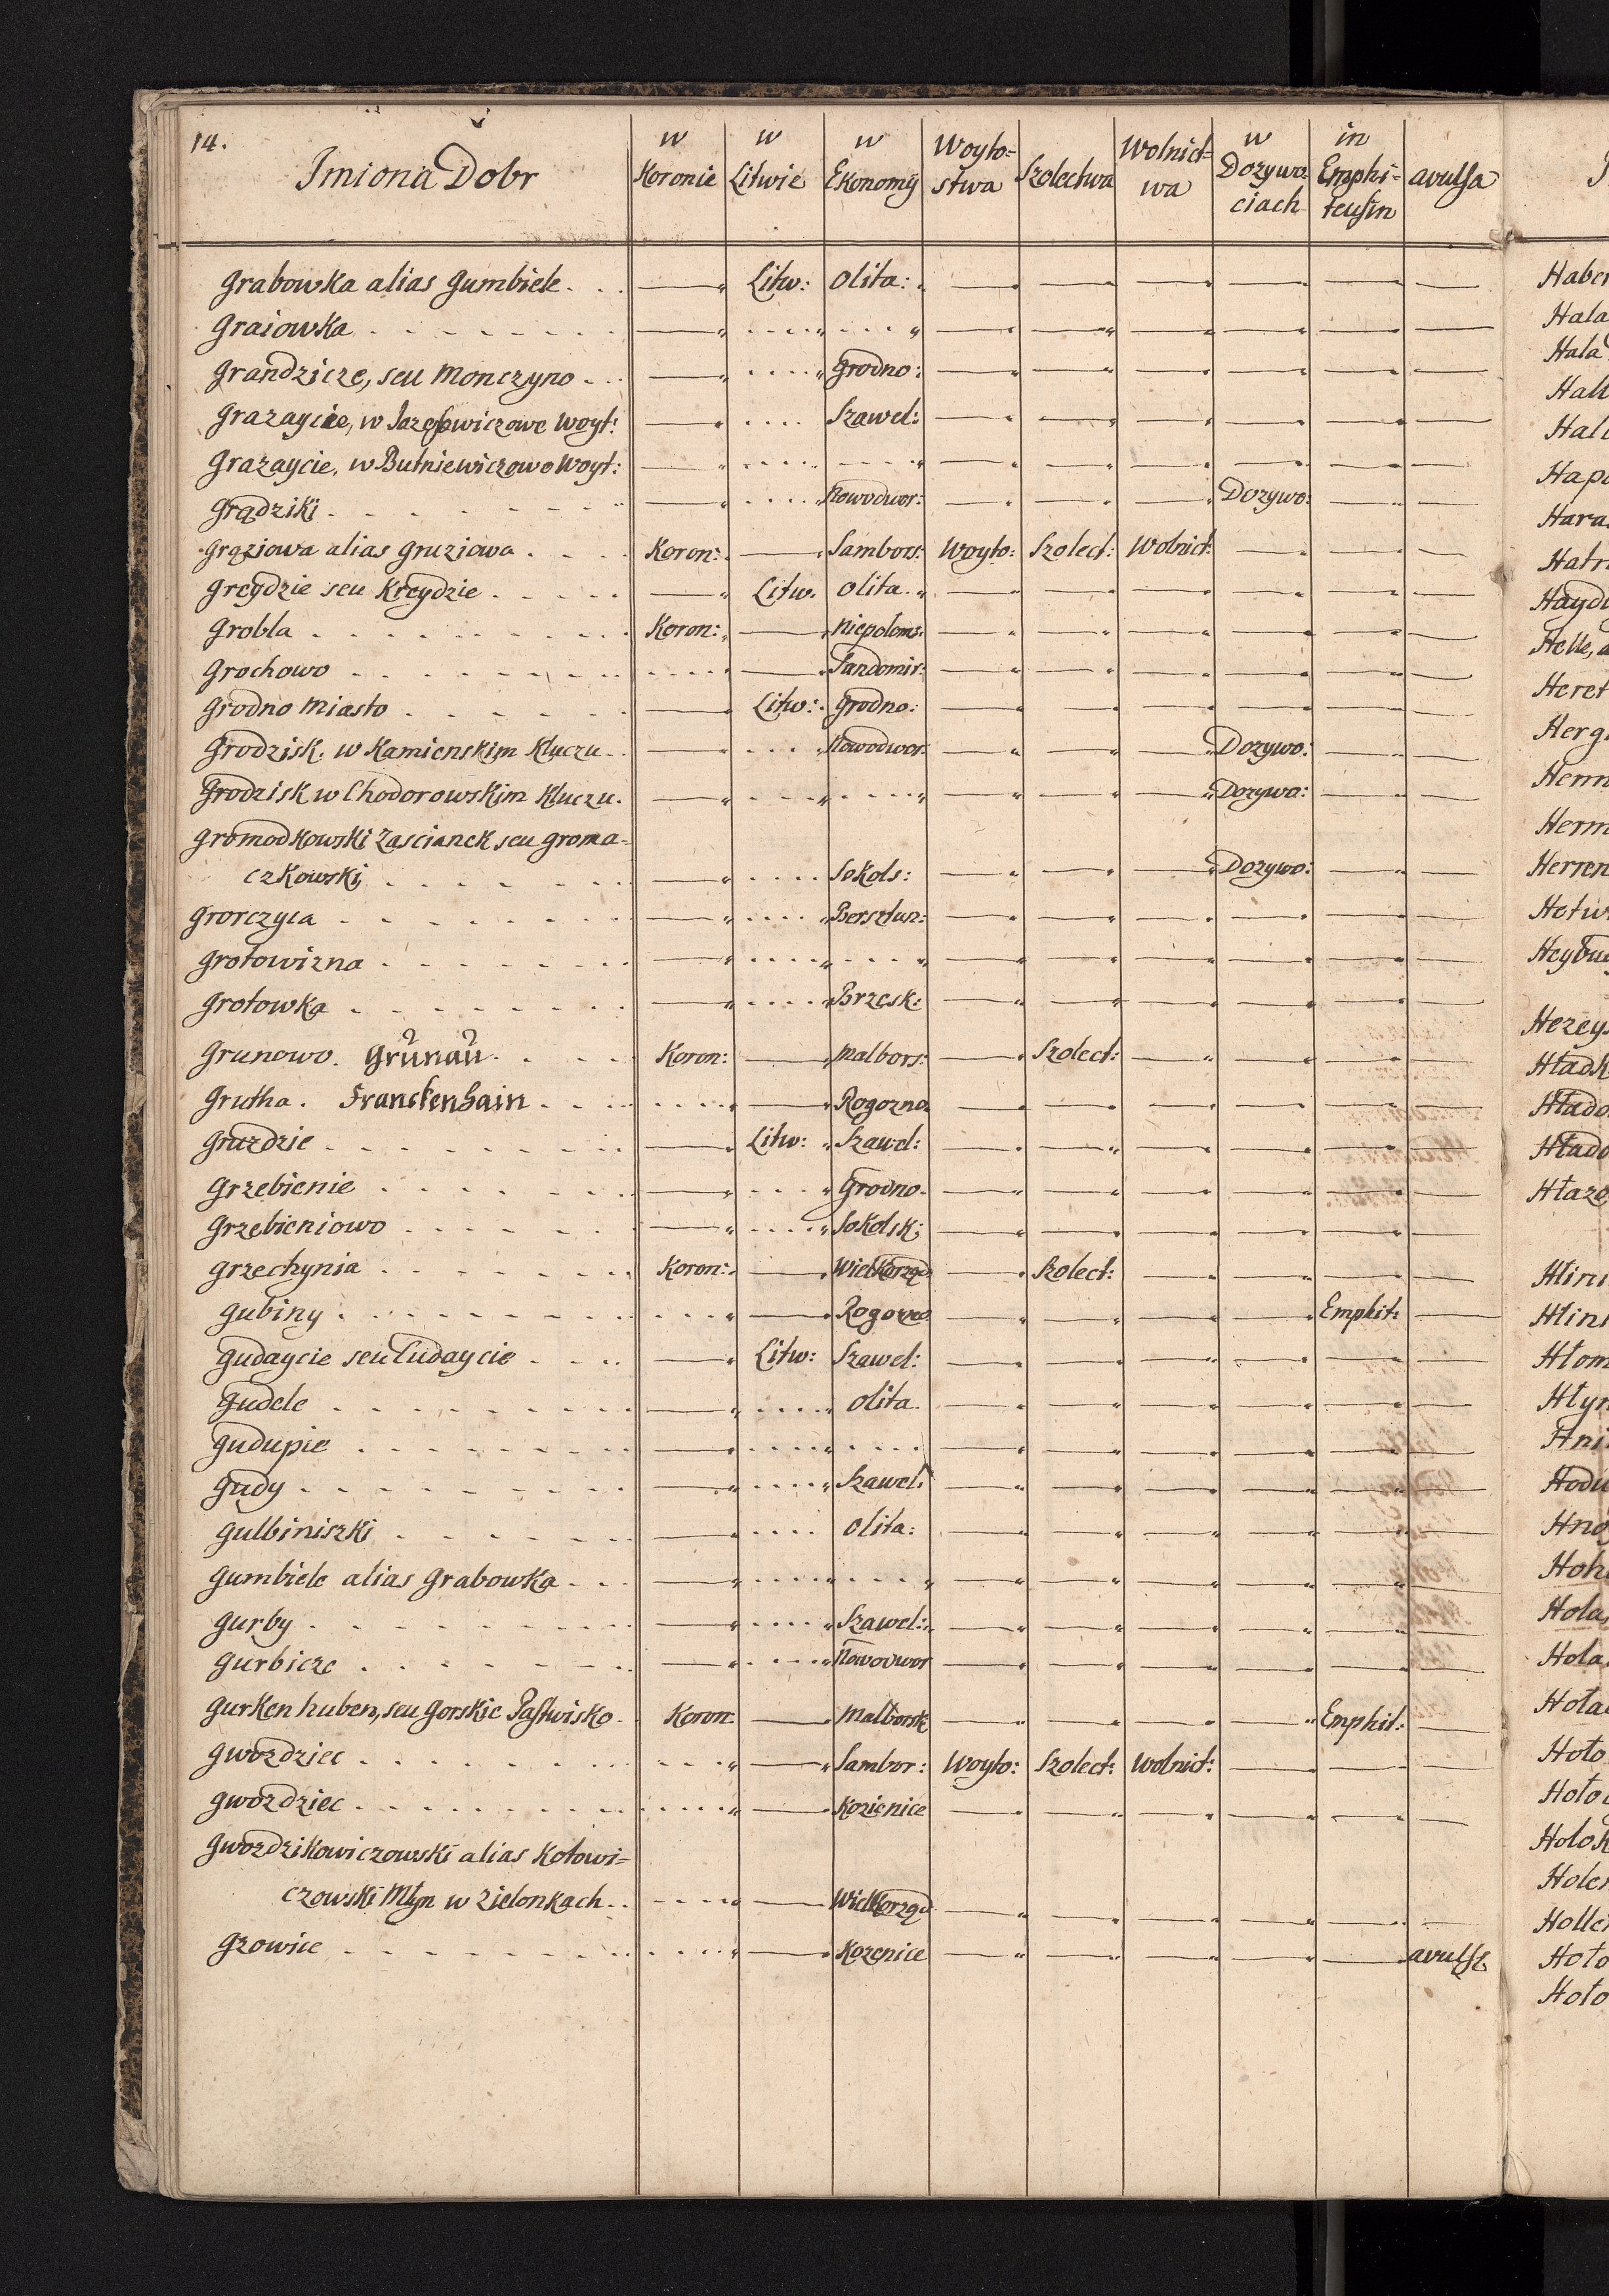 14.
Imiona Dobr | w Koronie | w Litwie | w Ekonomij | Woyto=stwa | Szolectwa | Wolnict=wa | w Dozywo:ciach | in Emphi=teusin | avulsa
Grabowka alias Gumbiele . . . | — | Litw: | Olita: | — | — | — | — | — | —
Graiowka . . . . . . . . | — | . . . . | . . . | — | — | — | — | — | —
Grandzicze, seu Monczyno . . . | — | . . . . | Grodno: | — | — | — | — | — | —
Grazaycie, w Jozefowiczowe Woyt: | — | . . . . | Szawel: | — | — | — | — | — | —
Grazaycie, w Butniewiczowo Woyt: | — | . . . . | . . . . | — | — | — | — | — | —
Grądziki . . . . . . . . | — | . . . . | Nowodwor: | — | — | — | Dozywo: | — | —
Grąziowa alias Gruziowa . . . . | Koron: | — | Sambors: | Woyto: | Szolect: | Wolnict: | — | — | —
Greydzie seu Kreydzie . . . . . | — | Litw. | Olita. | — | — | — | — | — | —
Grobla . . . . . . . . . . | Koron: | — | Niepoloms: | — | — | — | — | — | —
Grochowo . . . . . . . . . | . . . . | — | Sandomir: | — | — | — | — | — | —
Grodno Miasto . . . . . . | — | Litw: | Grodno: | — | — | — | — | — | —
Grodzisk. w Kamienskim Kluczu . . | — | . . . . | Nowodwor: | — | — | — | Dozywo: | — | —
Grodzisk w Chodorowskim Kluczu. | — | . . . . | . . . . | — | — | — | Dozywo: | — | —
Gromodkowski Zascianek seu Groma=
czkowski, . . . . . . . . | — | . . . . | Sokols: | — | — | — | Dozywo: | — | —
Grorczyca . . . . . . . . | — | . . . . | Bersztun: | — | — | — | — | — | —
Grotowizna . . . . . . . | — | . . . . | . . . . | — | — | — | — | — | —
Grotowka . . . . . . . . | — | . . . . | Brzesk: | — | — | — | — | — | —
Grunowo. Grünaü . . . . . | Koron: | — | Malbors: | — | Szolect: | — | — | — | —
Grutha. Franckenhain . . . . | . . . . | — | Rogozno. | — | — | — | — | — | —
Gruzdzie . . . . . . . . | — | Litw: | Szawel: | — | — | — | — | — | —
Grzebienie . . . . . . . | — | . . . . | Grodno. | — | — | — | — | — | —
Grzebieniowo . . . . . . | — | . . . . | Sokolsk: | — | — | — | — | — | —
Grzechynia . . . . . . . . | Koron: | — | Wielkorząd | — | Szolect: | — | — | — | —
Gubiny . . . . . . . . . | . . . . | — | Rogozno. | — | — | — | — | Emphit: | —
Gudaycie seu Cudaycie . . . . | — | Litw: | Szawel: | — | — | — | — | — | —
Gudele . . . . . . . . . | — | . . . . | Olita. | — | — | — | — | — | —
Gudupie . . . . . . . . | — | . . . . | . . . . | — | — | — | — | — | —
Gudy . . . . . . . . . | — | . . . . | Szawel: | — | — | — | — | — | —
Gulbiniszki . . . . . . . | — | . . . . | Olita: | — | — | — | — | — | —
Gumbiele alias Grabowka . . . | — | . . . . | . . . . | — | — | — | — | — | —
Gurby . . . . . . . . . | — | . . . . | Szawel: | — | — | — | — | — | —
Gurbicze . . . . . . . . | — | . . . . | Nowodwor | — | — | — | — | — | —
Gurken huben, seu Gorskie Pastwisko. | Koron. | — | Malborsk | — | — | — | — | Emphit: | —
Gwozdziec . . . . . . . . | . . . . | — | Sambor: | Woyto: | Szolect: | Wolnict: | — | — | —
Gwozdziec . . . . . . . . | . . . . | — | Kozienice | — | — | — | — | — | —
Gwozdzikowiczowski alias Kotowi=
czowski Młyn w Zielonkach . . | . . . . | — | Wielkorząd | — | — | — | — | — | —
Gzowice . . . . . . . . . | . . . . | — | Kozenice | — | — | — | — | — | avulsa
Haber
Hala
Hala
Hapo
Hara
Hatr
Haydu
Helle, a
Heret
Herg
Herm
Herren
Hetw
Heybu
Hezey
Hładk
Hłado
Hłado
Hłazo
Hlini
Hlini
Hłom
Hłyn
Hni
Hodu
Hola
Hola
Hoło
Hołok
Holen
Holler
Hoło
Hoło